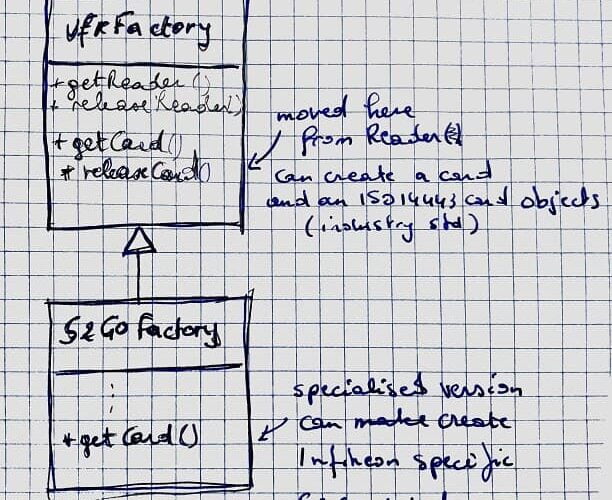 VfkFactory
+ getReader()
+ releaseReader()
+ getCard()
+ releaseCard()
moved here
from Reader()
can create a card
and an ISO14443 card objects
(industry std)
S2GoFactory
+ getCard()
specialised version
can make create
Infineon specific